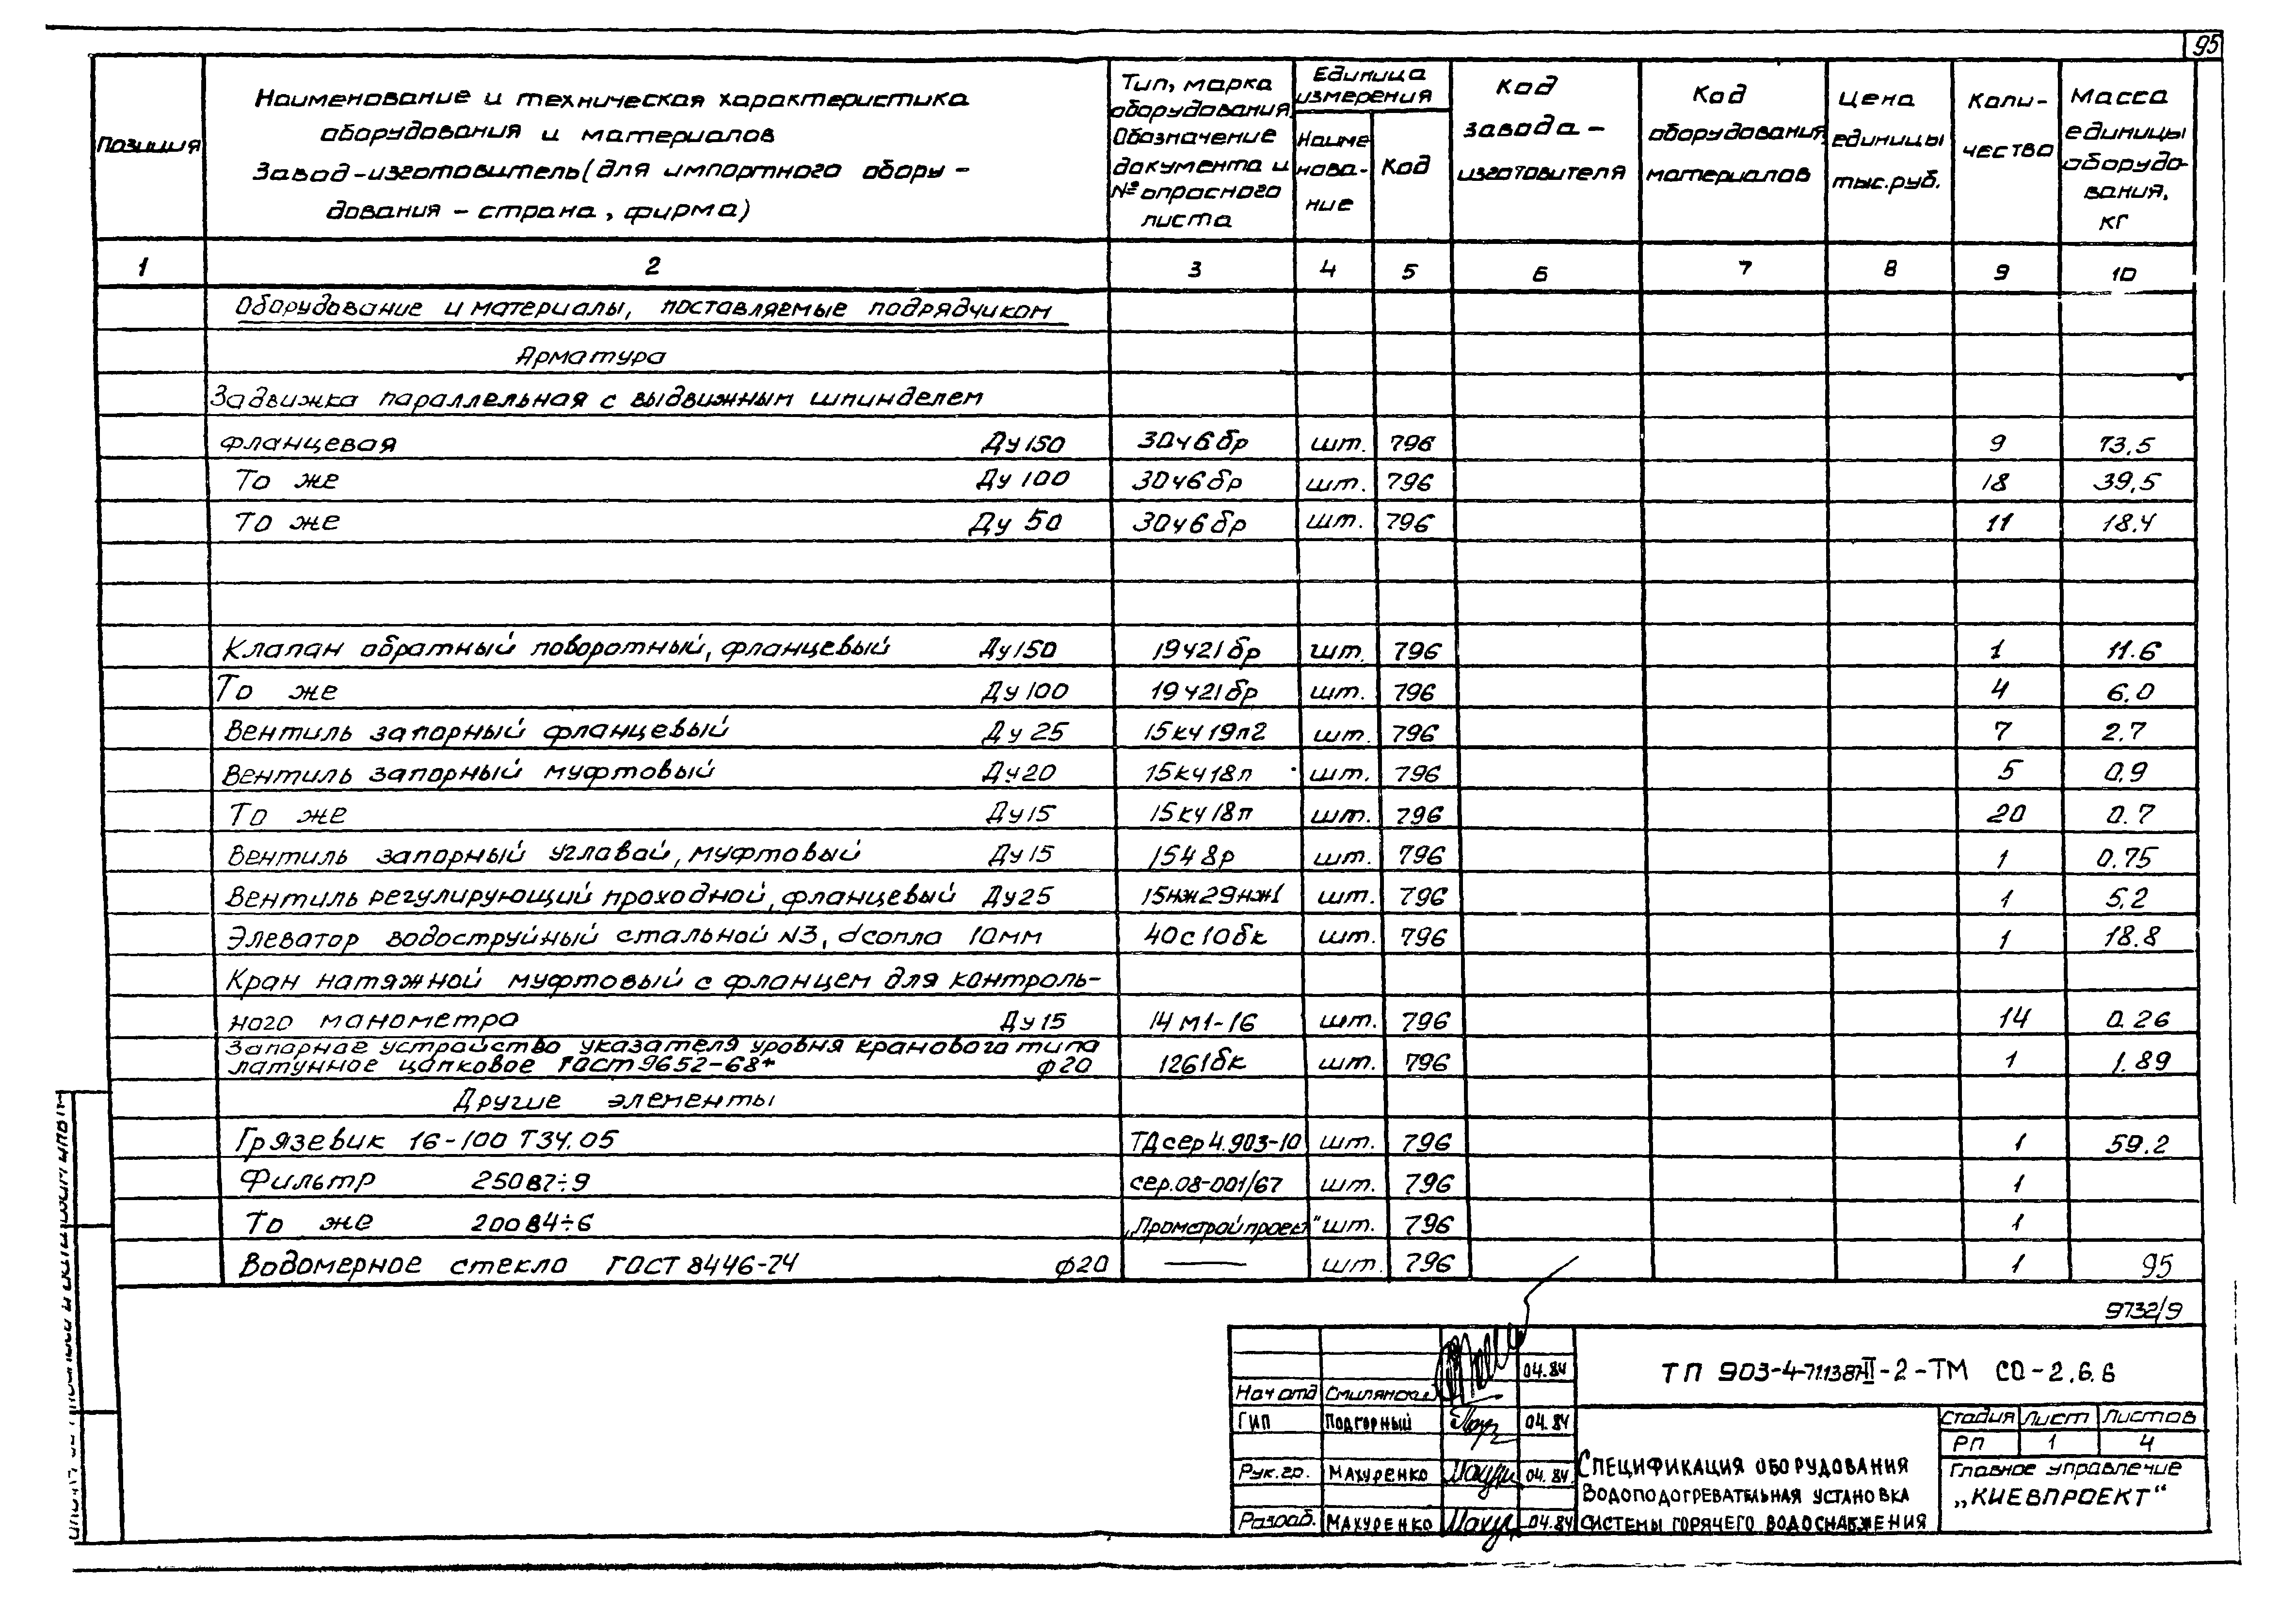 95
Позиция
Наименование и техническая характеристика
оборудования и материалов
Завод-изготовитель (для импортного обору-
дования - страна, фирма)
Тип, марка
оборудования.
Обозначение
документа и
№ опросного
листа
Единица
измерения
Наиме
нова-
ние
Код
Код
завода-
изготовителя
Код
оборудования,
материалов
Цена
единицы
тыс.руб.
Коли-
чество
Масса
единицы
оборудо-
вания,
кг
1 2 3 4 5 6 7 8 9 10
Оборудование и материалы, поставляемые подрядчиком
Арматура
Задвижка параллельная с выдвижным шпинделем
фланцевая Ду 150 30ч6бр шт. 796 9 73,5
То же Ду 100 30ч6бр шт. 796 18 39,5
То же Ду 50 30ч6бр шт. 796 11 18.4
Клапан обратный поворотный, фланцевый Ду 150 19ч21бр шт. 796 1 11.6
То же Ду 100 19ч21бр шт. 796 4 6.0
Вентиль запорный фланцевый Ду 25 15кч19п2 шт. 796 7 2.7
Вентиль запорный муфтовый Ду 20 15кч18п шт. 796 5 0,9
То же Ду 15 15кч18п шт. 796 20 0.7
Вентиль запорный угловой, муфтовый Ду 15 15ч8р шт. 796 1 0.75
Вентиль регулирующий проходной, фланцевый Ду 25 15нж29нж1 шт. 796 1 5,2
Элеватор водоструйный стальной N3, dсопла 10мм 40с10бк шт. 796 1 18.8
Кран натяжной муфтовый с фланцем для контроль-
ного манометра Ду 15 14М1-16 шт. 796 14 0.26
Запорное устройство указателя уровня кранового типа
латунное цапковое ГОСТ 9652-68* ф20 12б1бк шт. 796 1 1.89
Другие элементы
Грязевик 16-100 Т34.05 ТД сер 4.903-10 шт. 796 1 59.2
Фильтр 250В7÷9 сер.08-001/67 шт. 796 1
То же 200В4÷6 „Промстройпроект" шт. 796 1
Водомерное стекло ГОСТ 8446-74 ф20 — шт. 796 1 95
9732/9
04.84
Нач отд
ГИП Подгорный 04.84
Рук.гр. Махуренко 04.84.
Разраб. Махуренко 04.84
ТП 903-4-71.13.87 II-2-ТМ СО-2.6.6
Спецификация оборудования
Водоподогревательная установка
системы горячего водоснабжения
Стадия Лист Листов
РП 1 4
Главное управление
„КИЕВПРОЕКТ"